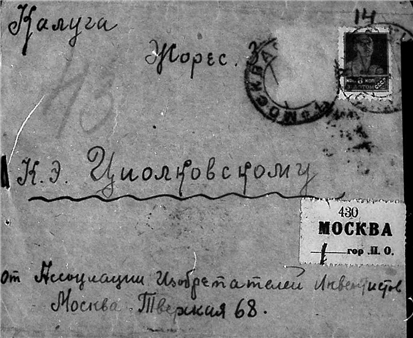 Калуга
14
Жорес. 3
МОСКВА
К. Э. Циолковскому
430
МОСКВА
гор. П. О.
от Ассоциации Изобретателей Инвентистов
Москва - Тверкая 68.